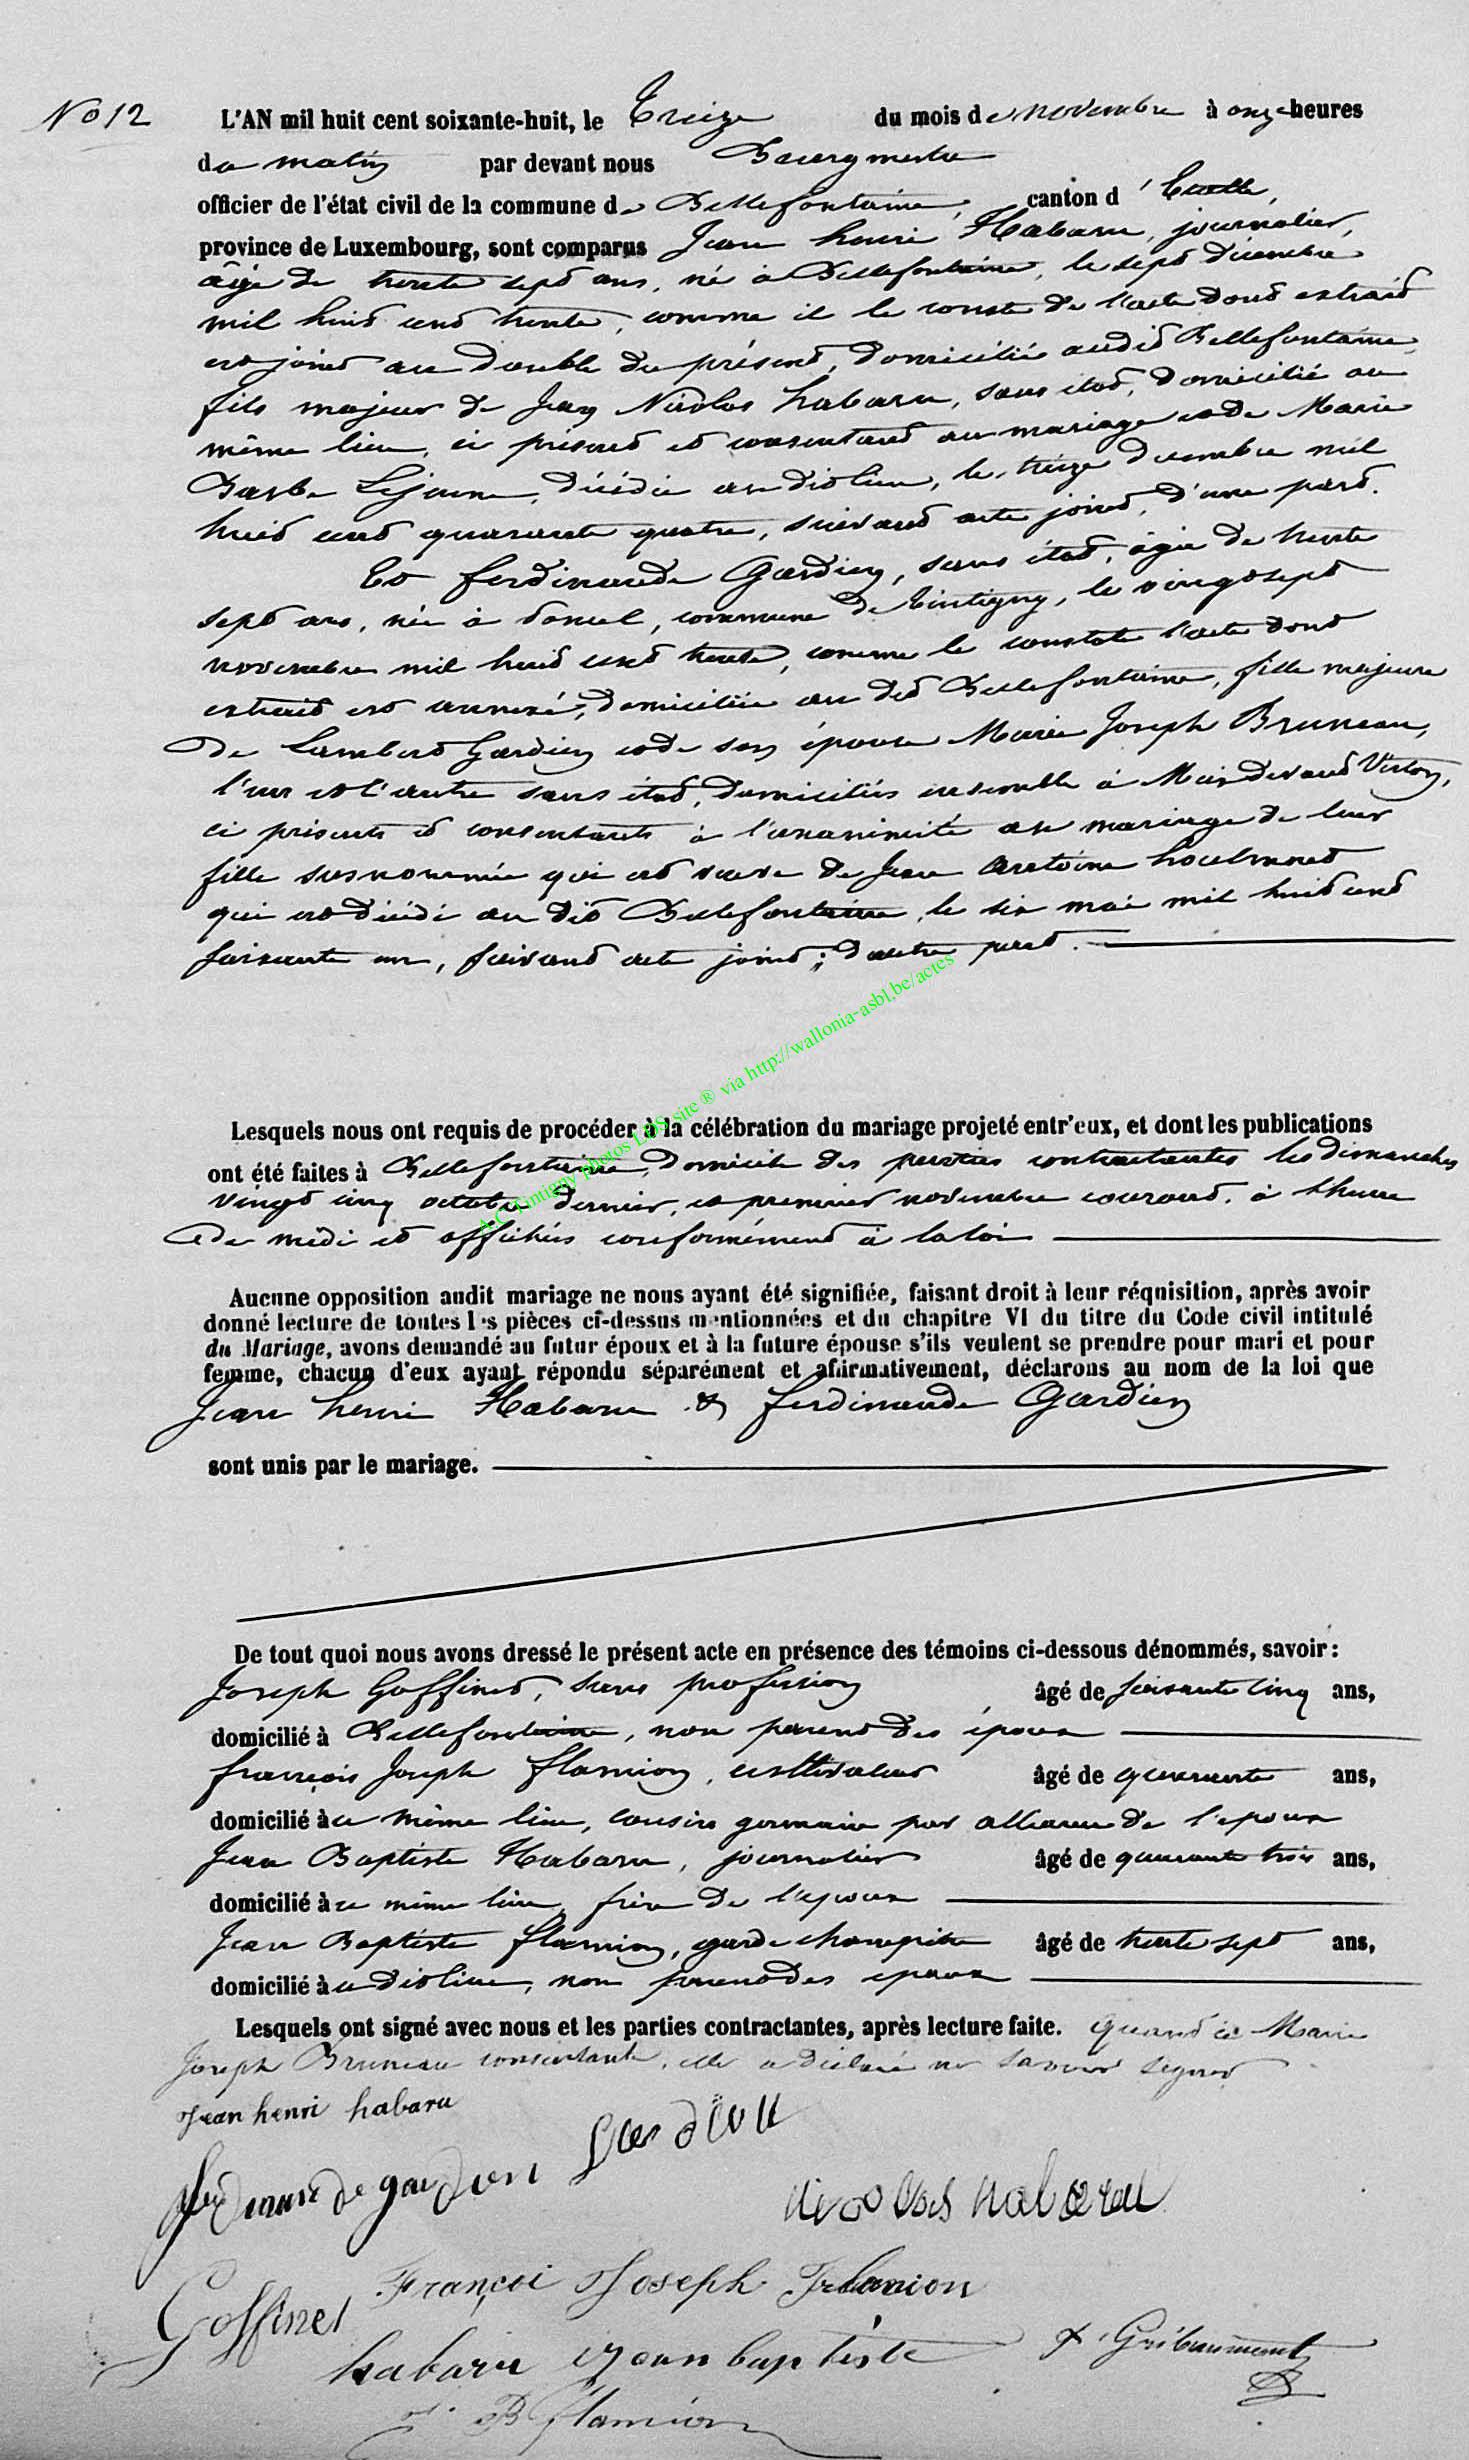 No 12
L'AN mil huit cent soixante-huit, le Treize du mois de novembre à onze heures
du matin par devant nous Bourgmestre
officier de l'état civil de la commune de Bellefontaine, canton d'Etalle,
province de Luxembourg, sont comparus Jean henri Habaru, journalier,
âgé de trente sept ans, né à Bellefontaine, le sept décembre
mil huit cent trente, comme il le conste de l'acte dont extrait
est joint au double du présent, domicilié audit Bellefontaine,
fils majeur de Jean Nicolas habaru, sans état, domicilié au
même lieu, ci présent et consentant au mariage et de Marie
Barbe Lejeune, décédée au dit lieu, le treize décembre mil
huit cent quarante quatre, suivant acte joint, d'une part.
Et ferdinande Gardien, sans état, agée de trente
sept ans, née à Poncel, commune de Tintigny, le vingt sept
novembre mil huit cent trente, comme le constate l'acte dont
extrait est annexé; domiciliée au dit Bellefontaine, fille majeure
de Lambert Gardien et de son épouse Marie Joseph Bruneau,
l'un et l'autre sans état, domiciliés ensemble à Meix devant Virton,
ci présents et consentants à l'unanimité au mariage de leur
fille susnommée qui est veuve de Jean Antoine houlmont
qui est décédé au dit Bellefontaine, le six mai mil huit cent
soixante un, suivant acte joint; d'autre part.
A.C Tintigny photos LDS site ® via http://wallonia-asbl.be/actes
Lesquels nous ont requis de procéder à la célébration du mariage projeté entr'eux, et dont les publications
ont été faites à Bellefontaine, domicile des parties contractantes les dimanches
vingt cinq octobre dernier, et premier novembre courant, à l'heure
de midi et affichées conformément à la loi
Aucune opposition audit mariage ne nous ayant été signifiée, faisant droit à leur réquisition, après avoir
donné lecture de toutes les pièces ci-dessus mentionnées et du chapitre VI du titre du Code civil intitulé
du Mariage, avons demandé au futur époux et à la future épouse s'ils veulent se prendre pour mari et pour
femme, chacun d'eux ayant répondu séparément et affirmativement, déclarons au nom de la loi que
Jean henri Habaru & ferdinande Gardien
sont unis par le mariage.
De tout quoi nous avons dressé le présent acte en présence des témoins ci-dessous dénommés, savoir:
Joseph Goffinet, sans profession âgé de soixante cinq ans,
domicilié à Bellefontaine, non parent des époux
françois Joseph flamion, cultivateur âgé de quarante ans,
domicilié à ce même lieu, cousin germain par alliance de l'epoux
Jean Baptiste Habaru, journalier âgé de quarante trois ans,
domicilié à ce même lieu, frère de l'epoux
Jean Baptiste flamion, garde champêtre âgé de trente sept ans,
domicilié à ce dit lieu, non parent des epoux
Lesquels ont signé avec nous et les parties contractantes, après lecture faite. Quant à Marie
Joseph Bruneau consentante, elle a déclaré ne savoir signer
Jean henri habaru
gardien
ferdinande gardien
nicolas habaru
François Joseph Flamion
Goffinet
habaru jean baptiste
Gribaumont
J. B flamion